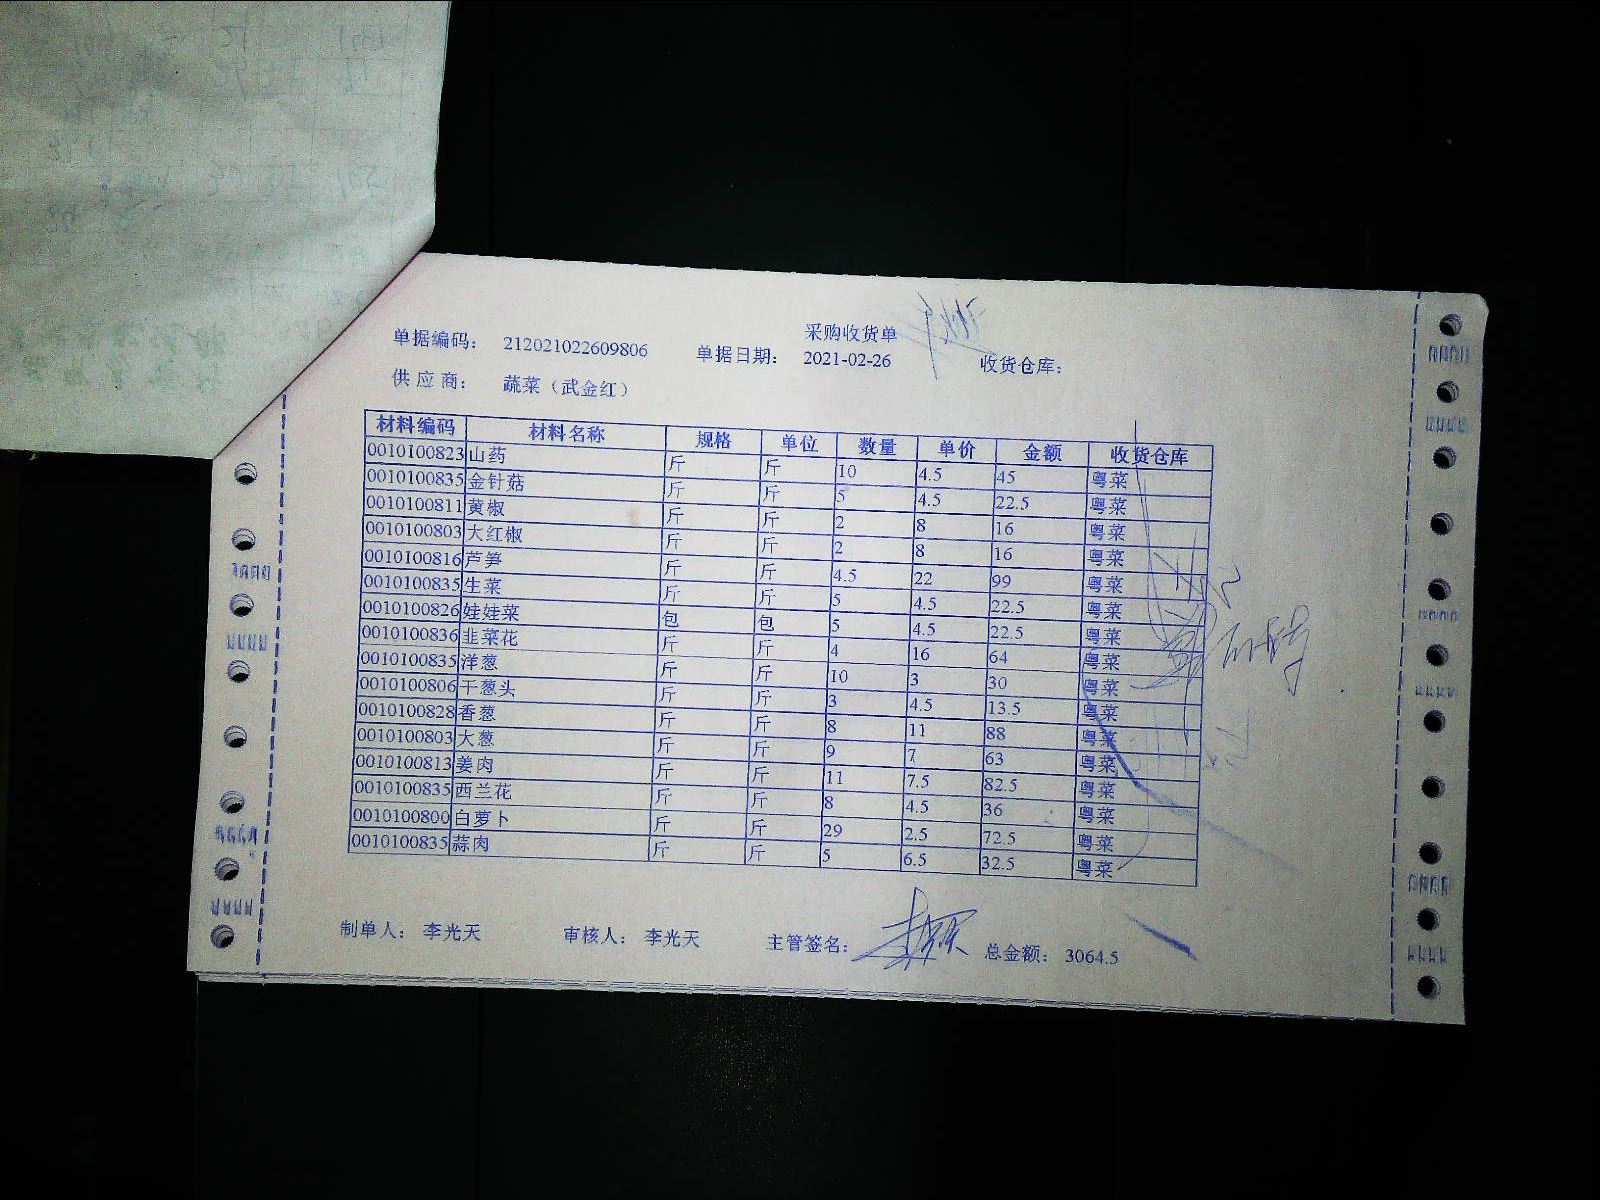 采购收货单
单据编码： 212021022609806 单据日期： 2021-02-26 收货仓库：
供 应 商： 蔬菜（武金红）
材料编码 材料名称 规格 单位 数量 单价 金额 收货仓库
0010100823 山药 斤 斤 10 4.5 45 粤菜
0010100835 金针菇 斤 斤 5 4.5 22.5 粤菜
0010100811 黄椒 斤 斤 2 8 16 粤菜
0010100803 大红椒 斤 斤 2 8 16 粤菜
0010100816 芦笋 斤 斤 4.5 22 99 粤菜
0010100835 生菜 斤 斤 5 4.5 22.5 粤菜
0010100826 娃娃菜 包 包 5 4.5 22.5 粤菜
0010100836 韭菜花 斤 斤 4 16 64 粤菜
0010100835 洋葱 斤 斤 10 3 30 粤菜
0010100806 干葱头 斤 斤 3 4.5 13.5 粤菜
0010100828 香葱 斤 斤 8 11 88 粤菜
0010100803 大葱 斤 斤 9 7 63 粤菜
0010100813 姜肉 斤 斤 11 7.5 82.5 粤菜
0010100835 西兰花 斤 斤 8 4.5 36 粤菜
0010100800 白萝卜 斤 斤 29 2.5 72.5 粤菜
0010100835 蒜肉 斤 斤 5 6.5 32.5 粤菜
制单人： 李光天 审核人： 李光天 主管签名： 总金额： 3064.5